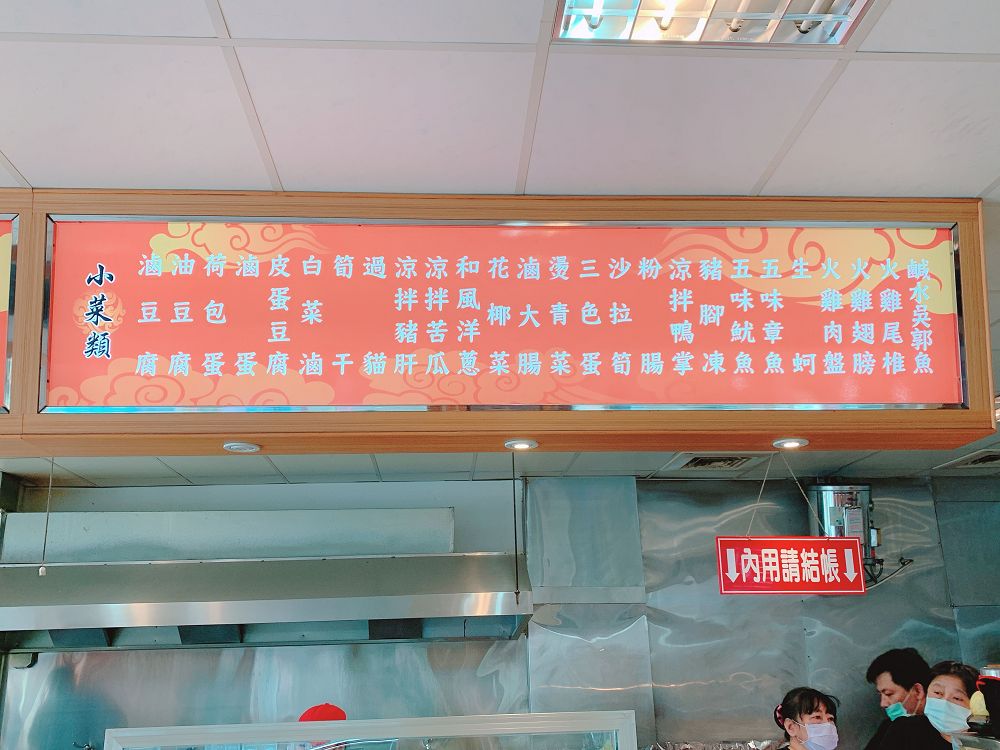 小菜類
滷豆腐
油豆腐
荷包蛋
滷蛋
皮蛋豆腐
白菜滷
筍干
過貓
涼拌豬肝
涼拌苦瓜
和風洋蔥
花椰菜
滷大腸
燙青菜
三色蛋
沙拉筍
粉腸
涼拌鴨掌
豬腳凍
五味魷魚
五味章魚
生蚵
火雞肉盤
火雞翅膀
火雞尾椎
鹹水吳郭魚
↓內用請結帳↓